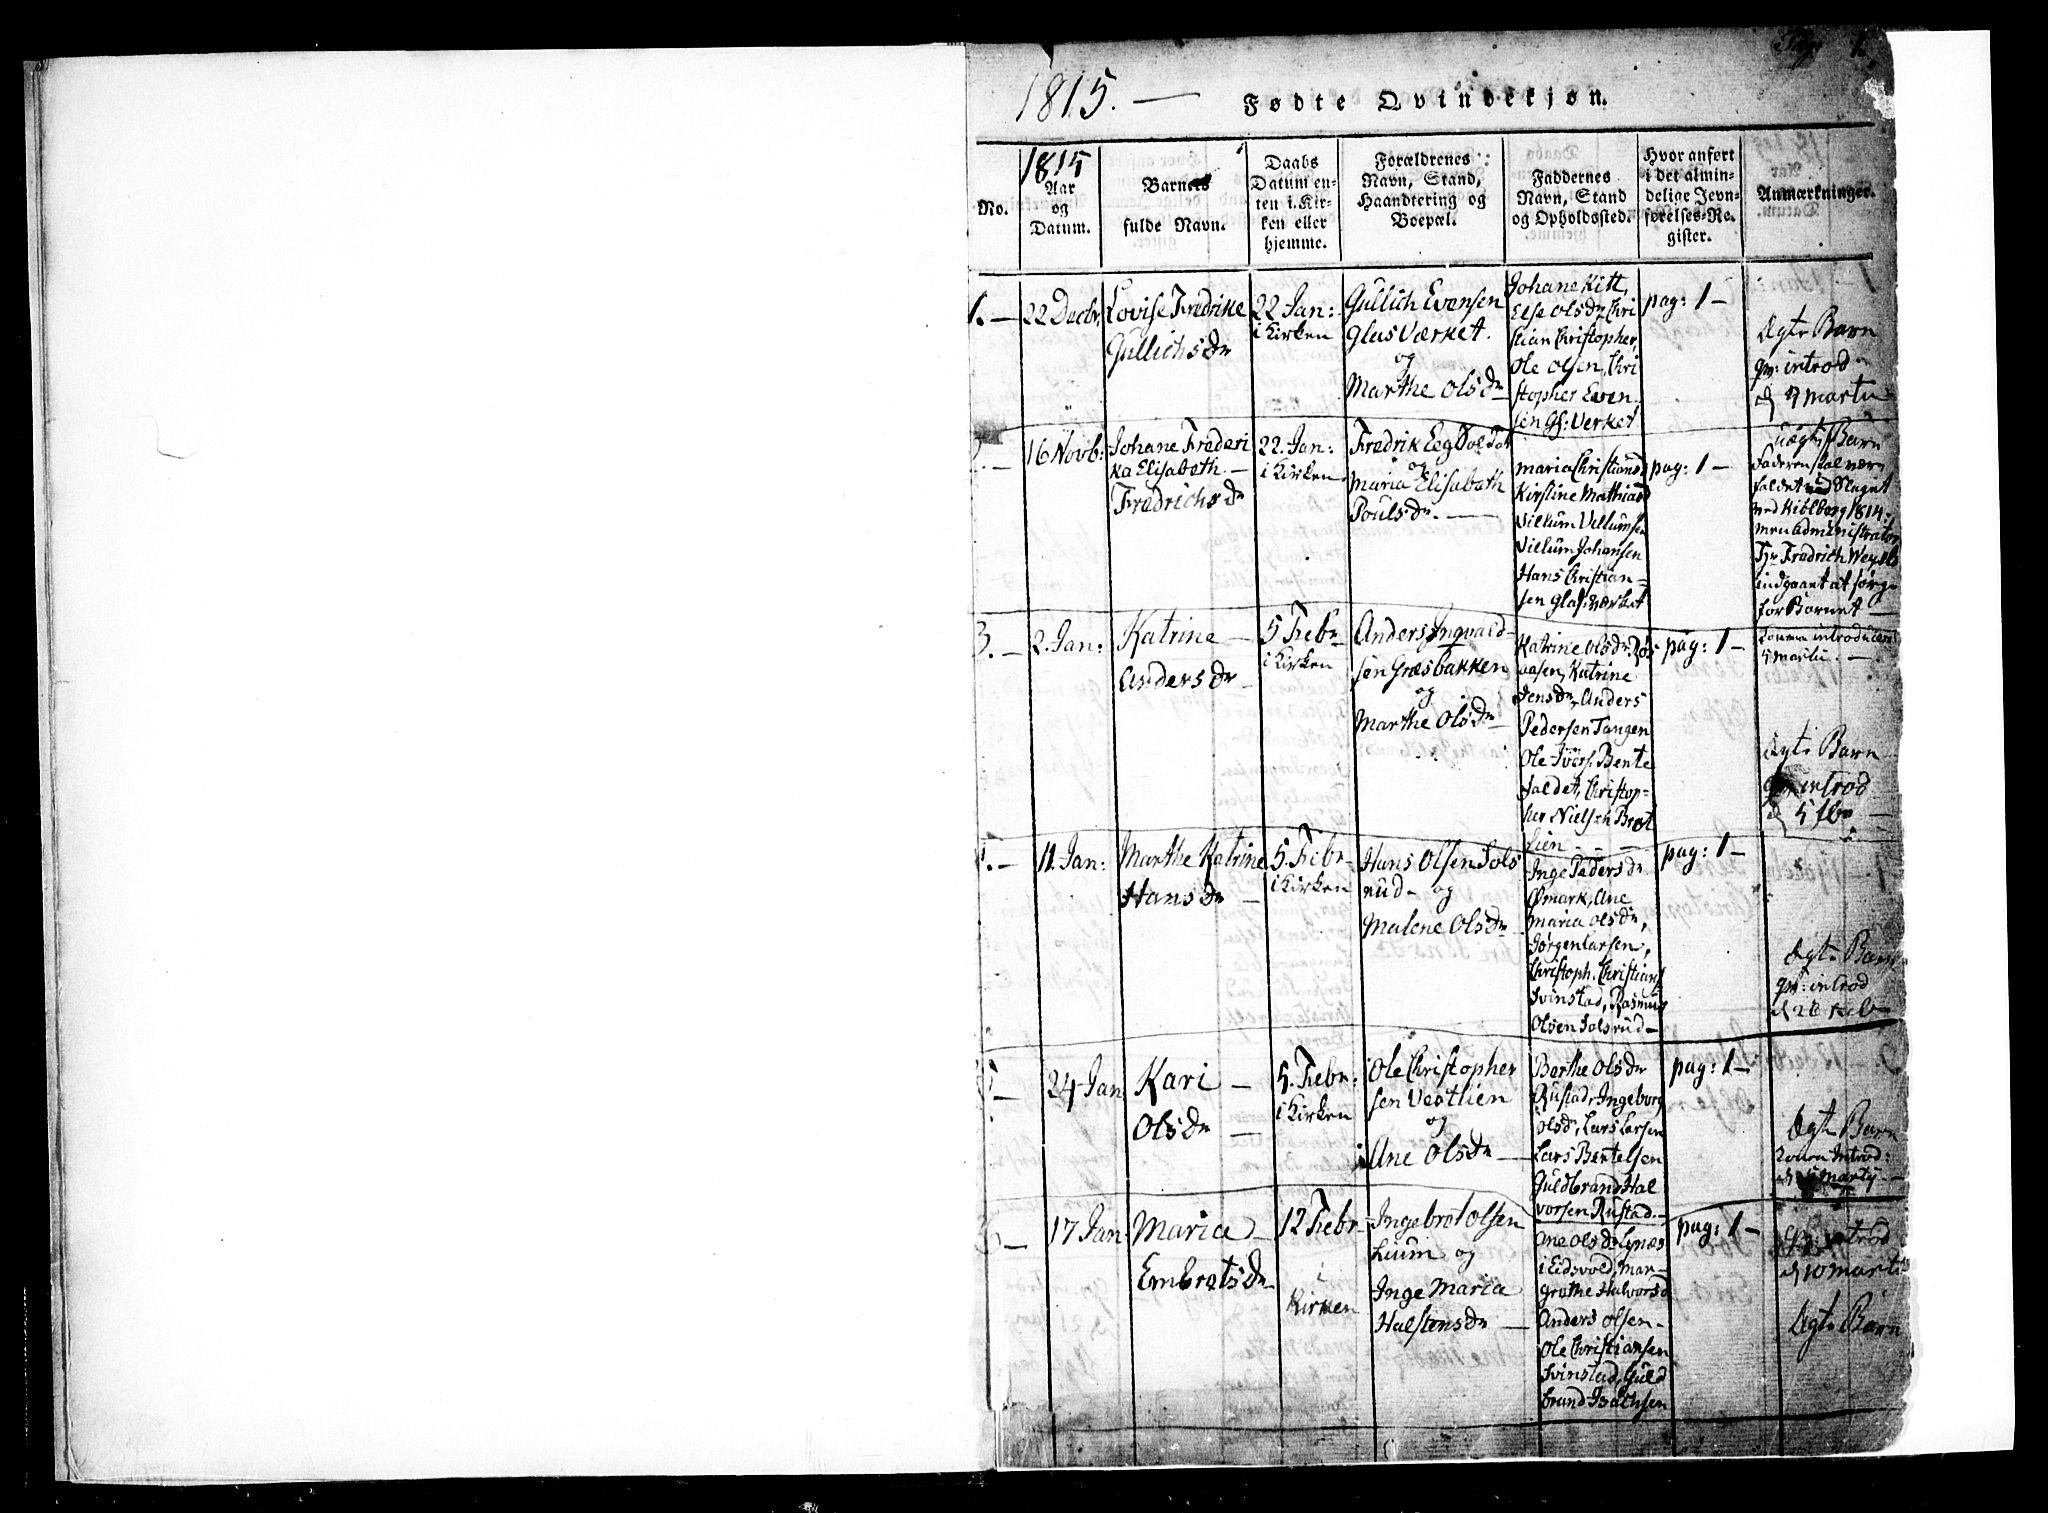 1815. — Fødte Qvindekjøn.
No.
1815
Aar
og
Datum.
Barnets
fulde Navn.
Daabs
Datum en-
ten i Kir-
ken eller
hjemme.
Forældrenes
Navn, Stand,
Haandtering og
Boepæl.
Faddernes
Navn, Stand
og Opholdssted.
Hvor anført
i det almin-
delige Jevn-
førelses-Re-
gister.
Anmærkninger.
1. —
22 Decbr.
Lovise Fredrike
Gullichsdr
22 Jan:
i Kirken
Gullich Evensen
Glasværket.
og
Marthe Olsdr
Johane Kitt,
Else Olsdr, Chri
stian Christopher,
Ole Olsen, Chri
stopher Even
sen Gl: Verket
pag: 1 —
Ægte Barn
introd
Martii
16 Novb:
Johane Frederi
ka Elisabeth. —
Fredrichsdr
22. Jan:
i Kirken
Fredrik Eeg Soldat
og
Maria Elisabeth
Poulsdr. —
Maria Christiansd
Kirstine Mathiasd
Villum Villumsen
Villum Johansen
Hans Christian=
sen Glasværket
pag: 1 —
Uægte Barn
Faderen skal være
faldet ved Slaget
ved Kiölberg 1814:
men Administrator
Hr Fredrich Weyde
indgaaet at sørge
for Barnet —
introduceret
Martii. —
3. —
2. Jan:
Katrine —
Andersdr
5 Febr
i Kirken
Anders Ingvald-
sen Græsbakken
og
Marthe Olsdr
Katrine Olsdr Røs
aasen, Katrine
Jensdr, Anders
Pedersen Tangen
Ole Ivers. Bente
faldet, Christop-
her Nielsen Brot
Lien — —
pag: 1 —
Ægte Barn
introd
5 Febr
11. Jan:
Marthe Katrine
Hansdr —
5. Febr
i Kirken
Hans Olsen Sols
rud — og
Malene Olsdr
Inge Pedersdr
Ømark, Ane
Maria Olsdr,
Jørgen Larsen,
Christoph. Christians
Svinstad, Rasmus
Olsen Solsrud —
pag: 1 —
Ægte Barn
introd
24 Jan
Kari —
Olsdr —
5. Febr:
i Kirken
Ole Christopher
sen Vestlien
og
Ane Olsdr —
Berthe Olsdr
Rustad, Ingeborg
Olsd, Lars Larsen
Lars Bertelsen
Guldbrand Hal
vorsen Rustad. —
pag: 1 —
Ægte Barn
Introd:
Martij —
17 Jan
Maria —
Embretsdr
12 Febr
i
Kirken
Ingebret Olsen
Lium og
Inge Maria
Halstensdr —
Ane Olsdr Lynæs
i Eidsvold, Mar-
grethe Halvorsd
Anders Olsen —
Ole Christiansen
Svinstad, Guld
brand Isachsen
pag: 1 —
introd
10 Martii
Ægte Barn